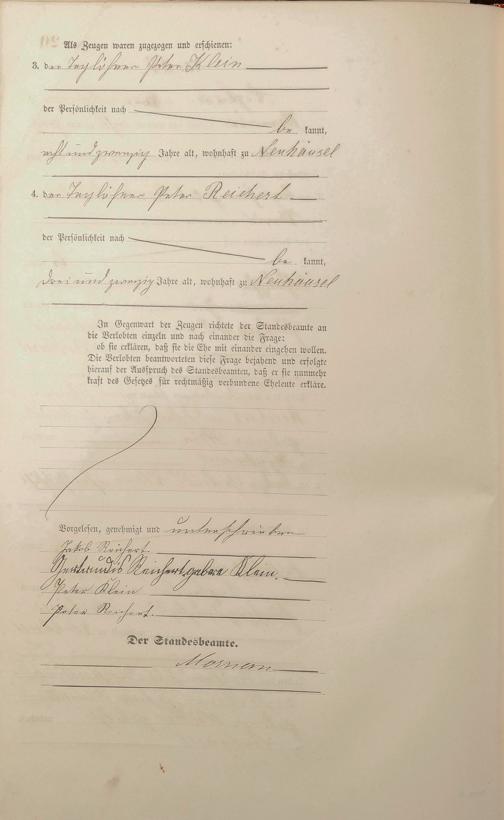 Als Zeugen waren zugezogen und erschienen:
3. der Taglöhner Peter Klein
der Persönlichkeit nach
be kannt,
acht und zwanzig Jahre alt, wohnhaft zu Neuhäusel
4. der Taglöhner Peter Reichert
der Persönlichkeit nach
be kannt,
drei und zwanzig Jahre alt, wohnhaft zu Neuhäusel
In Gegenwart der Zeugen richtete der Standesbeamte an
die Verlobten einzeln und nach einander die Frage:
ob sie erklären, daß sie die Ehe mit einander eingehen wollen.
Die Verlobten beantworteten diese Frage bejahend und erfolgte
hierauf der Ausspruch des Standesbeamten, daß er sie nunmehr
kraft des Gesetzes für rechtmäßig verbundene Eheleute erkläre.
Vorgelesen, genehmigt und unterschrieben
Jakob Reichert
Gertrudis Reichert geborne Klein.
Peter Klein
Peter Reichert
Der Standesbeamte.